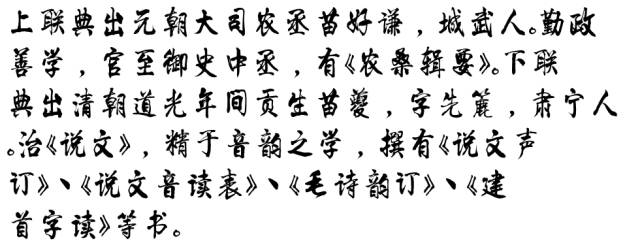 上联典出元朝大司农丞苗好谦，城武人。勤政
善学，官至御史中丞，有《农桑辑要》。下联
典出清朝道光年间贡生苗夔，字先簏，肃宁人
。治《说文》，精于音韵之学，撰有《说文声
订》、《说文音读表》、《毛诗韵订》、《建
首字读》等书。